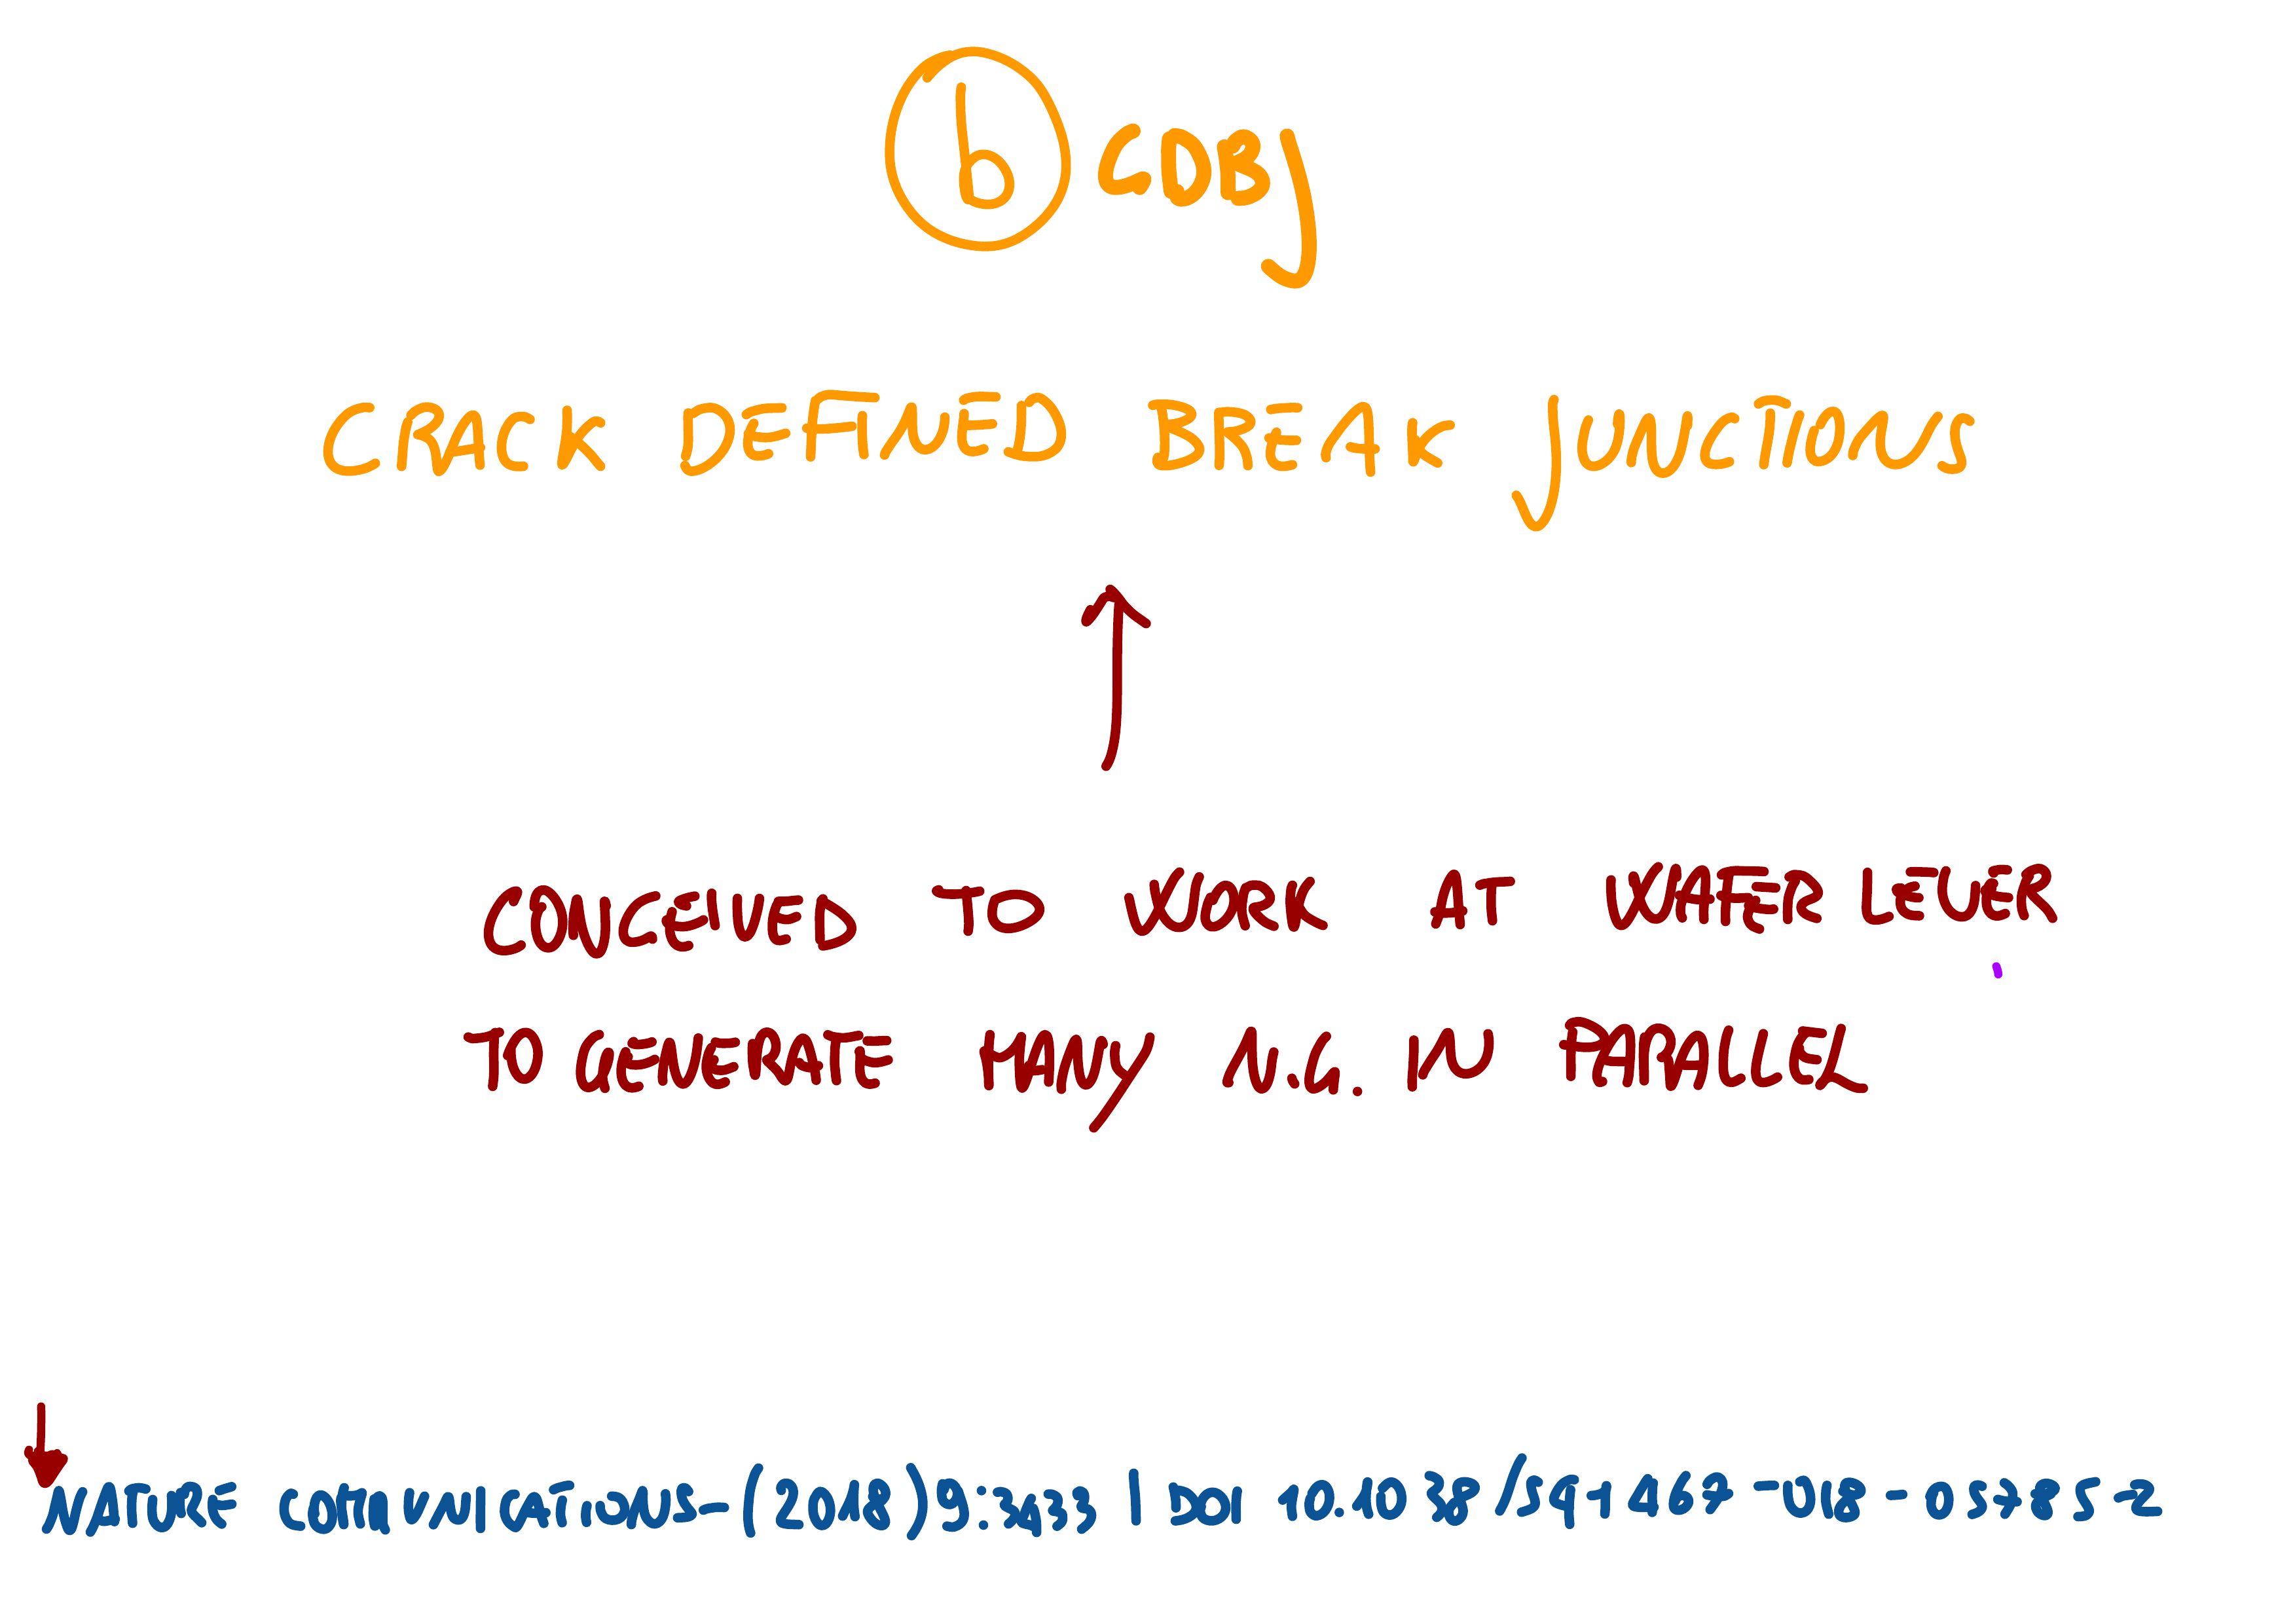 b CDBJ
CRACK DEFINED BREAK JUNCTIONS
CONCEIVED TO WORK AT WAFER LEVER
TO GENERATE MANY N.G. IN PARALLEL
NATURE COMMUNICATIONS-(2018) 9:3433 | DOI 10.1038/S41467-018-05785-2